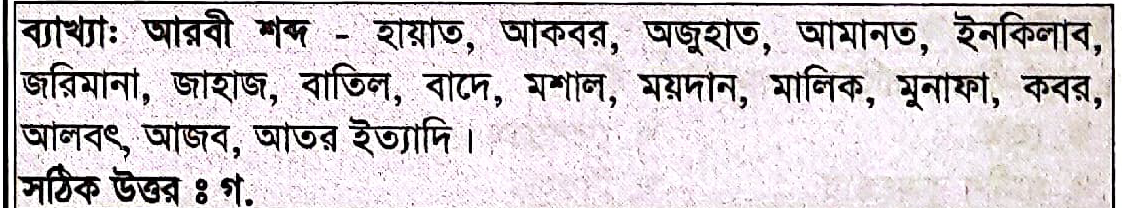 ব্যাখ্যাঃ আরবী শব্দ - হায়াত, আকবর, অজুহাত, আমানত, ইনকিলাব,
জরিমানা, জাহাজ, বাতিল, বাদে, মশাল, ময়দান, মালিক, মুনাফা, কবর,
আলবৎ, আজব, আতর ইত্যাদি।
সঠিক উত্তর ঃ গ.